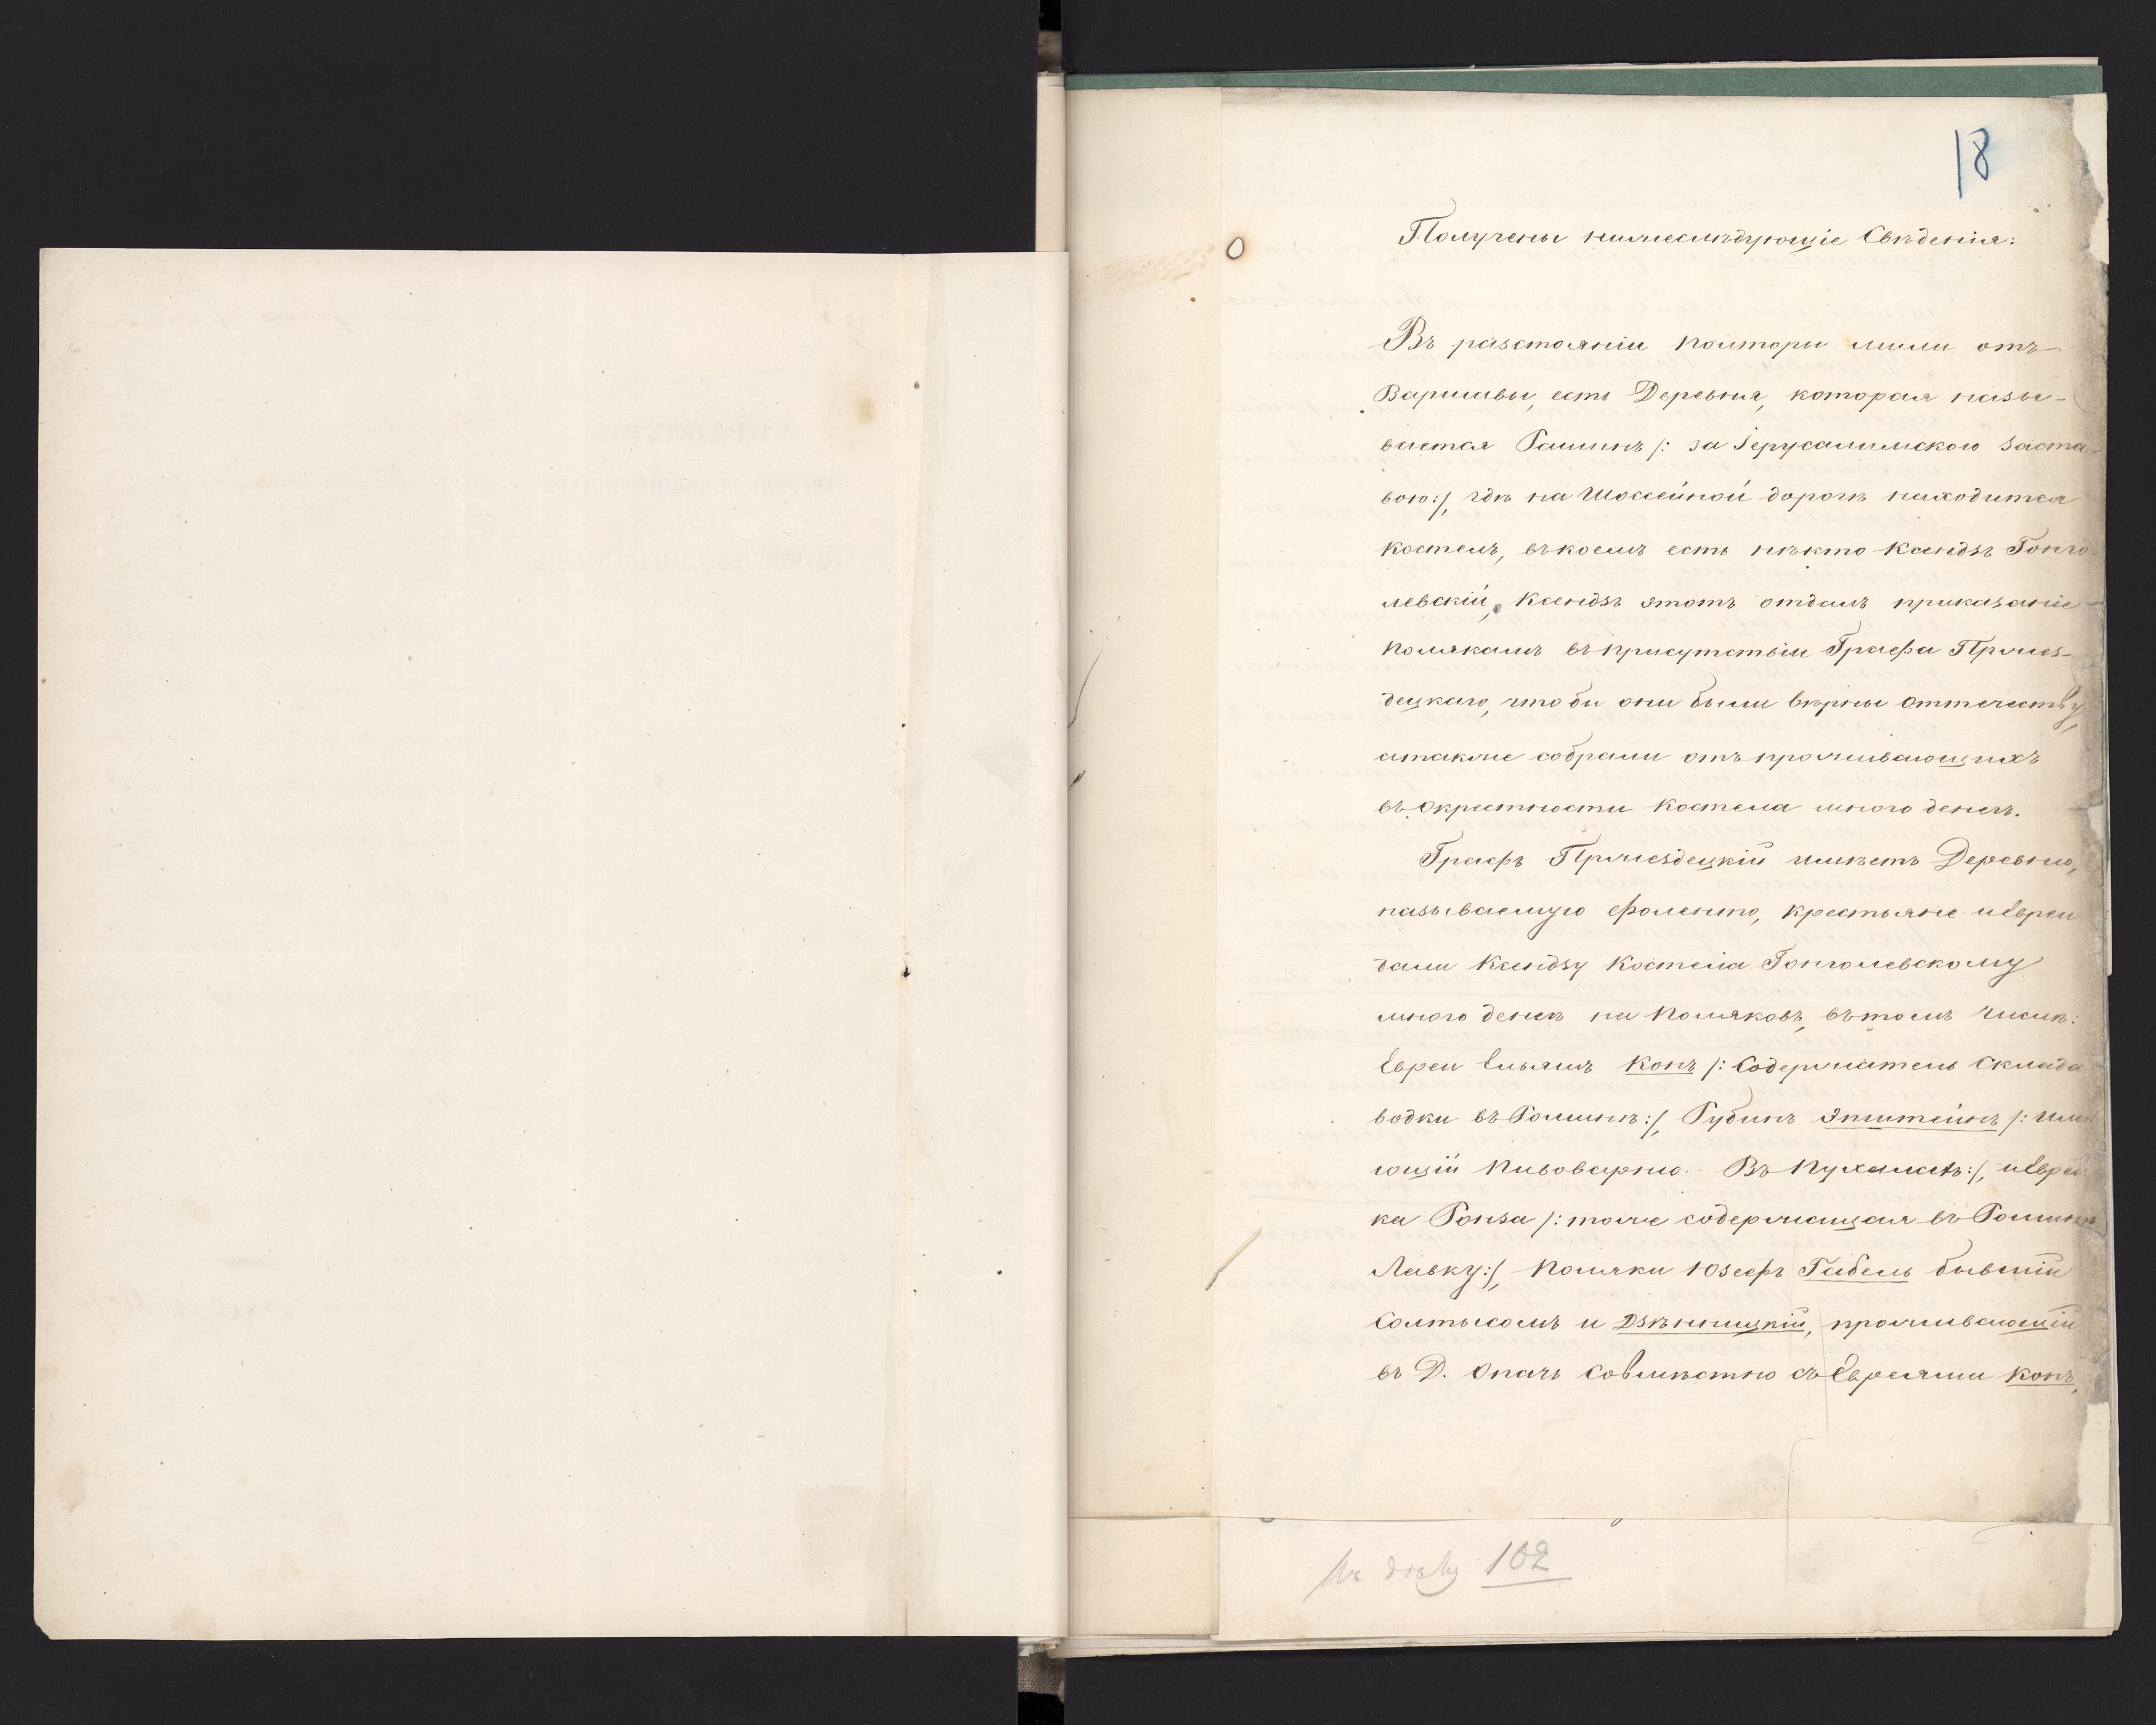 18
Получены нижеслѣдующіе Свѣденія:
Въ разстояніи полторы мили отъ
Варшавы, есть Деревня, которая назы-
вается Рашинъ /: за Іерусалимскою Заста-
вою:/, гдѣ на Шоссейной дорогѣ находится
костелъ, въ коемъ есть нѣкто Ксендзъ Гонго-
левскій, Ксендзъ этотъ отдалъ приказаніе
полякамъ въ присутствіи Графа Пржез-
децкаго, что бы они были вѣрны отечеству,
а также собрали отъ проживающихъ
въ окрестности костела много денегъ.
Графъ Пржездецкій имѣетъ Деревню,
называемую Фоленто, крестьяне и Евреи
дали Ксендзу костела Гонголевскому
много денегъ на поляковъ, въ томъ числѣ:
Евреи Ельяшъ Конъ /: Содержатель Склада
водки въ Рашинѣ:/, Рубинъ Эпштейнъ /: имѣ
ющій пивоварню Въ Пухалахъ:/, и Еврей
ка Ронза /: тоже содержащая въ Рашинѣ
Лавку:/, поляки Юзефъ Габель бывшій
Солтысомъ и Дзѣнницкій, проживающій
въ Д. Опачъ совмѣстно съ Евреями Конъ,
Къ дѣлу 102